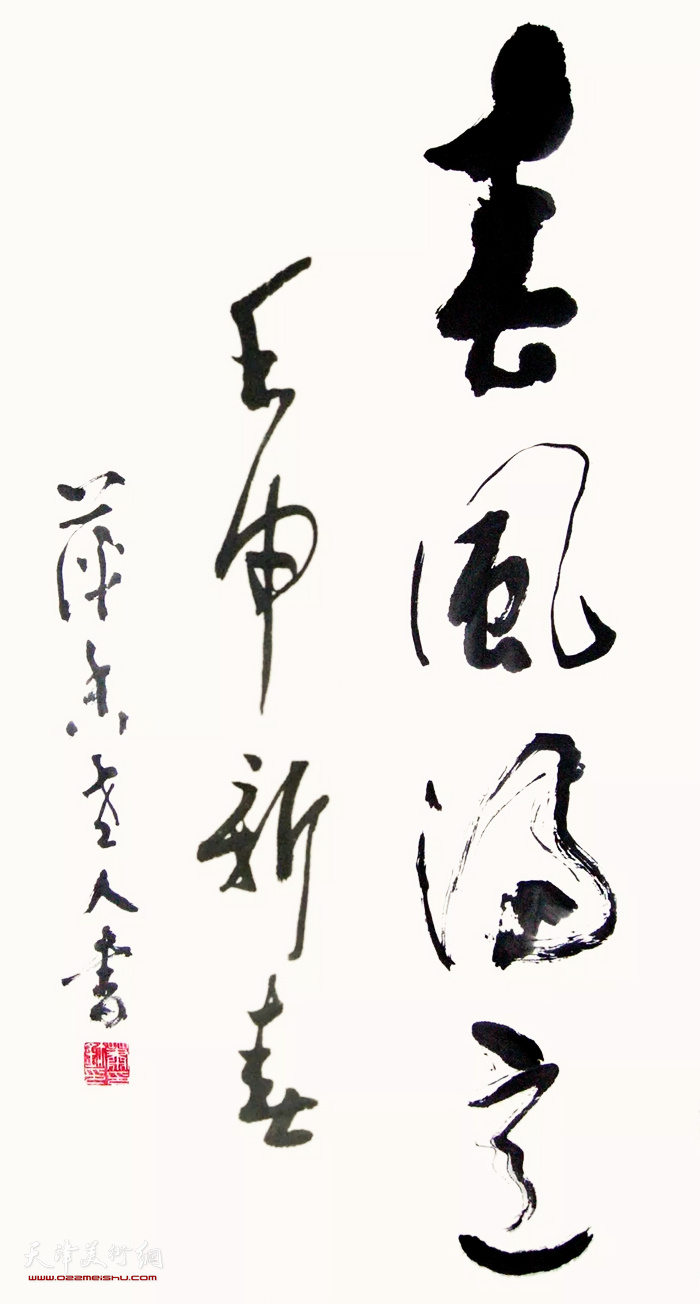 春風得意
壬申新春
萍香老人書
天津美術網
www.022meishu.com